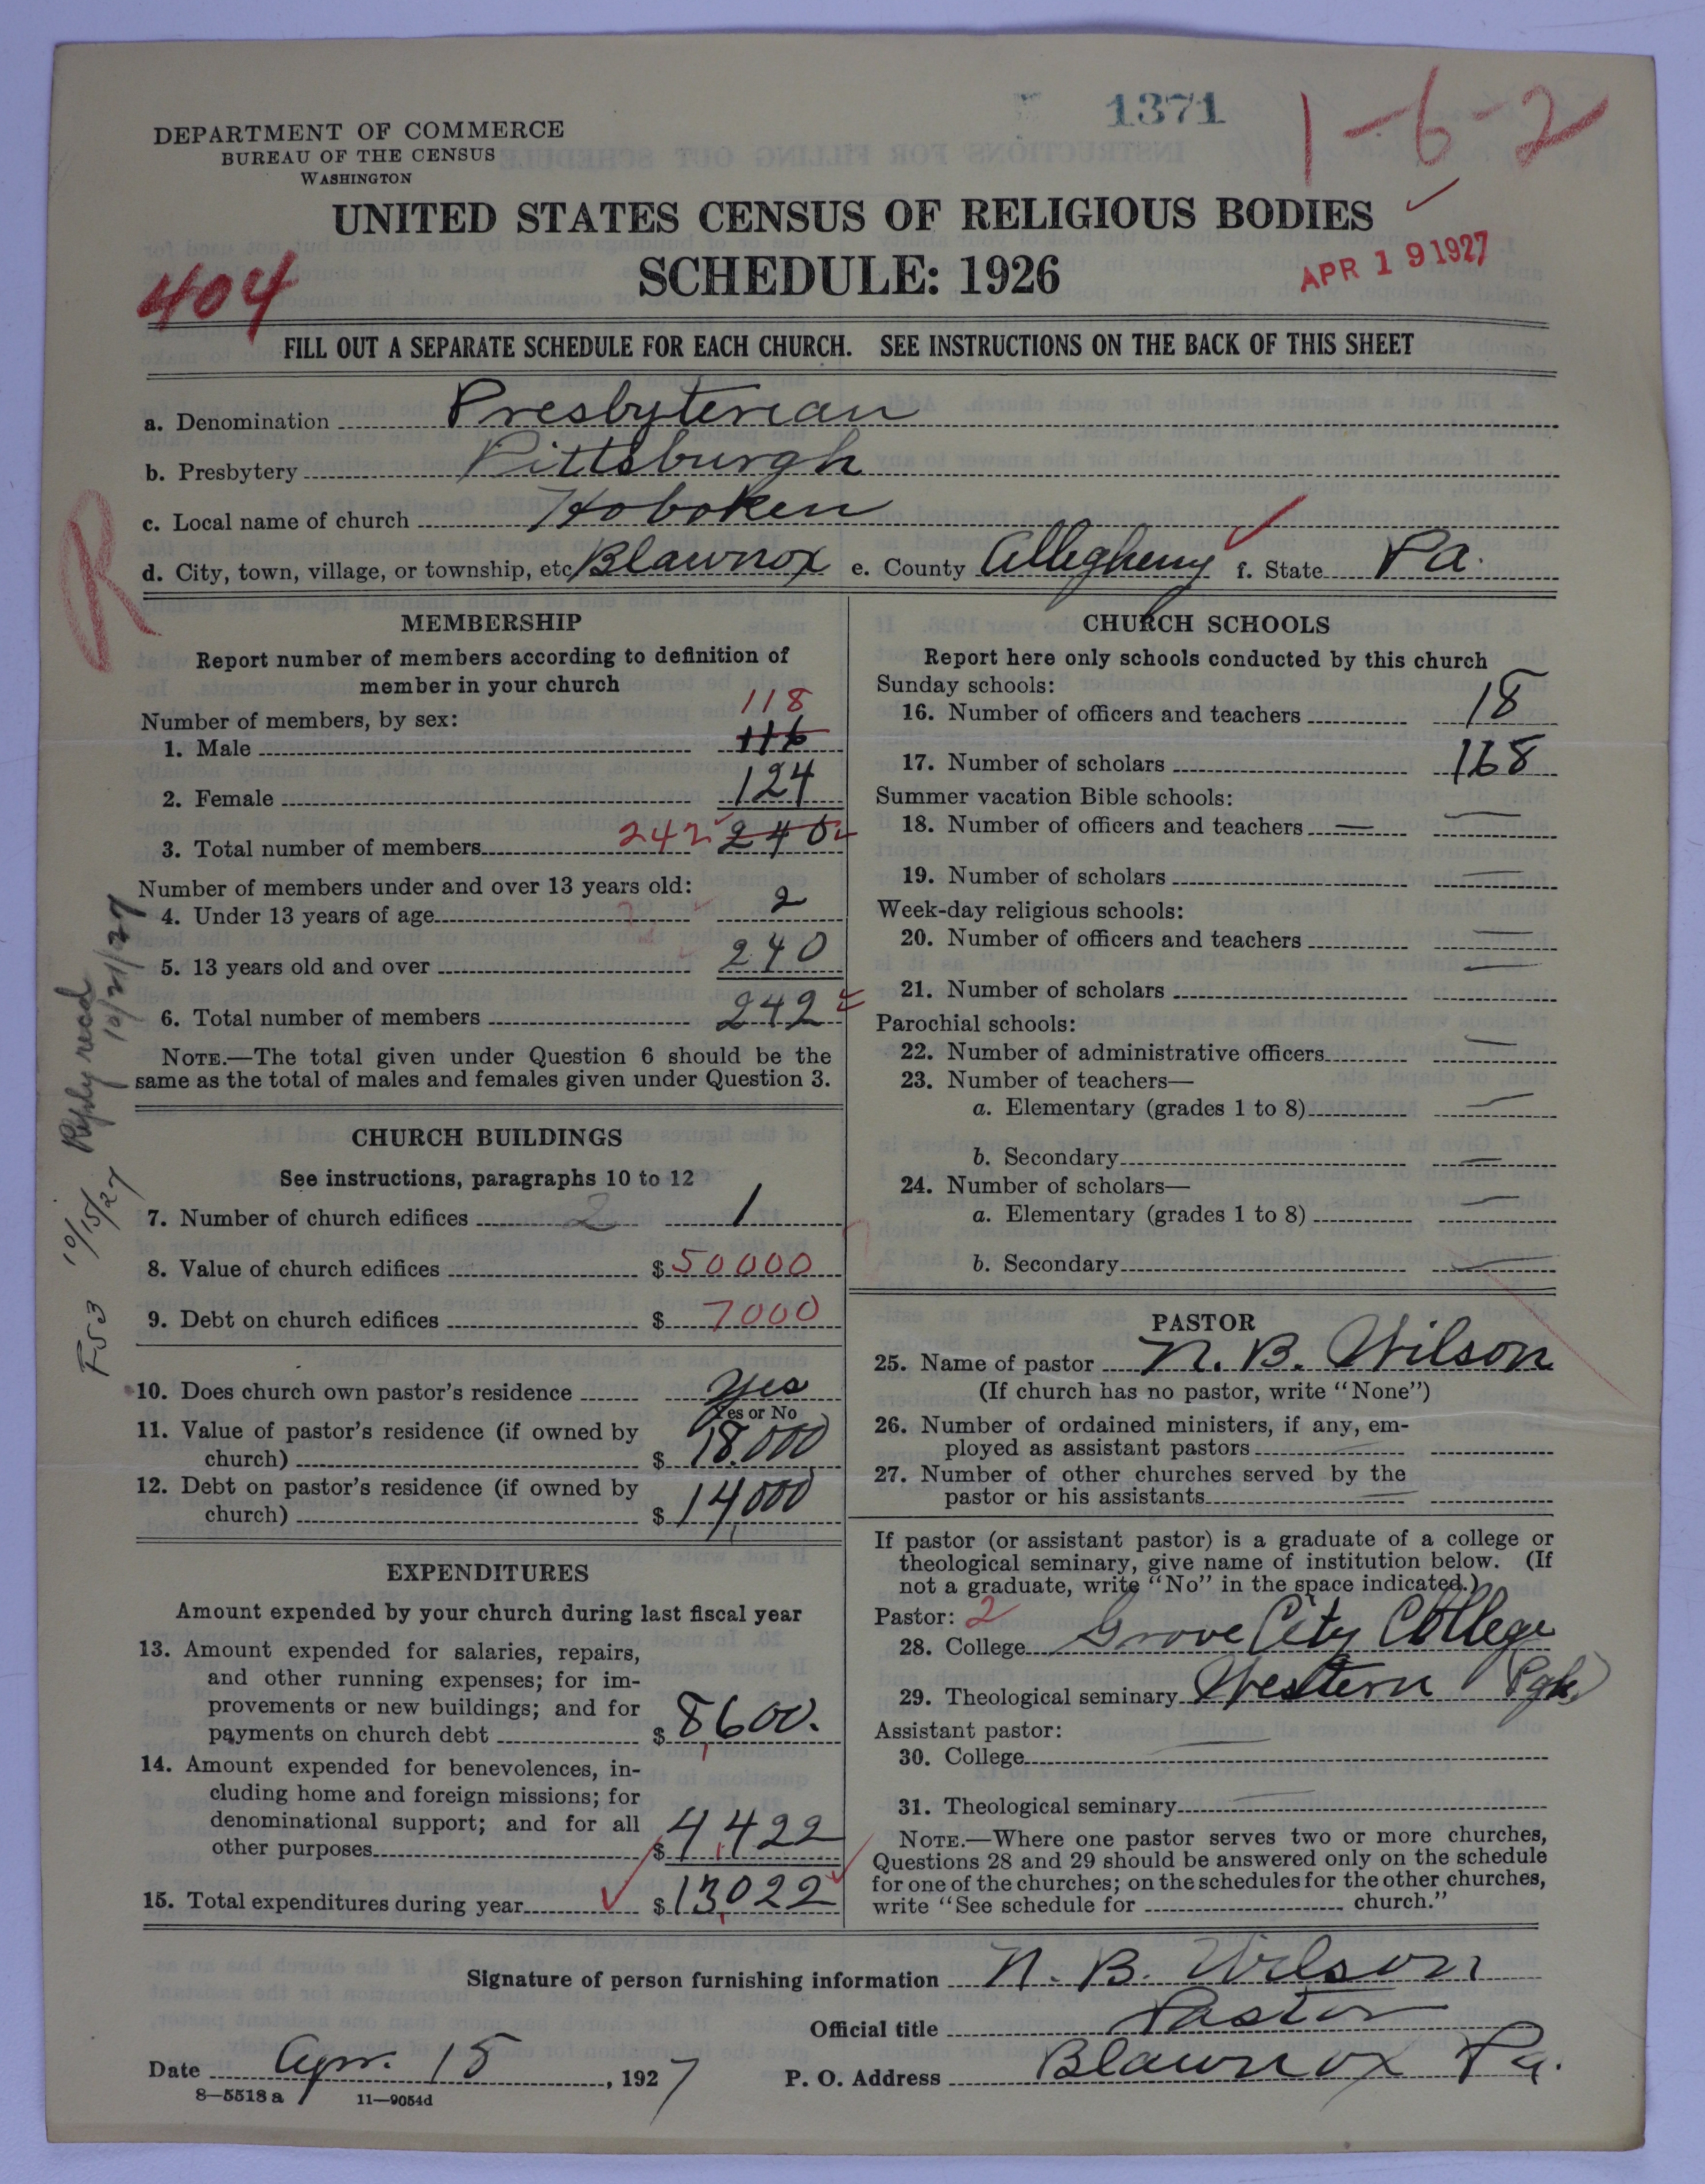 1371
1-6-2
DEPARTMENT OF COMMERCE
BUREAU OF THE CENSUS
WASHINGTON
UNITED STATES CENSUS OF RELIGIOUS BODIES
SCHEDULE: 1926
APR 19 1927
404
FILL OUT A SEPARATE SCHEDULE FOR EACH CHURCH. SEE INSTRUCTIONS ON THE BACK OF THIS SHEET
a. Denomination Presbyterian
b. Presbytery Pittsburgh
c. Local name of church Hoboken
d. City, town, village, or township, etc Blawnox e. County Allegheny f. State Pa.
R
MEMBERSHIP
Report number of members according to definition of
member in your church
118
Number of members, by sex:
1. Male 116
2. Female 124
3. Total number of members 242 240
Number of members under and over 13 years old:
4. Under 13 years of age 2 2
5. 13 years old and over 240
6. Total number of members 242
NOTE.—The total given under Question 6 should be the
same as the total of males and females given under Question 3.
CHURCH BUILDINGS
See instructions, paragraphs 10 to 12
7. Number of church edifices 2 1
8. Value of church edifices $ 50000
9. Debt on church edifices $ 7000
10. Does church own pastor's residence Yes
Yes or No
11. Value of pastor's residence (if owned by
church) $ 18.000
12. Debt on pastor's residence (if owned by
church) $ 14,000
EXPENDITURES
Amount expended by your church during last fiscal year
13. Amount expended for salaries, repairs,
and other running expenses; for im-
provements or new buildings; and for
payments on church debt $ 8,600.
14. Amount expended for benevolences, in-
cluding home and foreign missions; for
denominational support; and for all
other purposes $ 4,422
15. Total expenditures during year $ 13,022
F53 10/15/27 Reply recd
10/21/27
CHURCH SCHOOLS
Report here only schools conducted by this church
Sunday schools:
16. Number of officers and teachers 18
17. Number of scholars 168
Summer vacation Bible schools:
18. Number of officers and teachers — —
19. Number of scholars —
Week-day religious schools:
20. Number of officers and teachers —
21. Number of scholars —
Parochial schools:
22. Number of administrative officers —
23. Number of teachers—
a. Elementary (grades 1 to 8) —
b. Secondary —
24. Number of scholars—
a. Elementary (grades 1 to 8) —
b. Secondary —
PASTOR
25. Name of pastor N. B. Wilson
(If church has no pastor, write "None")
26. Number of ordained ministers, if any, em-
ployed as assistant pastors —
27. Number of other churches served by the
pastor or his assistants —
If pastor (or assistant pastor) is a graduate of a college or
theological seminary, give name of institution below. (If
not a graduate, write "No" in the space indicated.)
Pastor: 2
28. College Grove City College
29. Theological seminary Western (Pgh.)
Assistant pastor:
30. College —
31. Theological seminary —
NOTE.—Where one pastor serves two or more churches,
Questions 28 and 29 should be answered only on the schedule
for one of the churches; on the schedules for the other churches,
write "See schedule for church."
Signature of person furnishing information N. B. Wilson
Official title Pastor
Date Apr. 15, 1927 P. O. Address Blawnox Pa.
8—5518 a 11—9054d